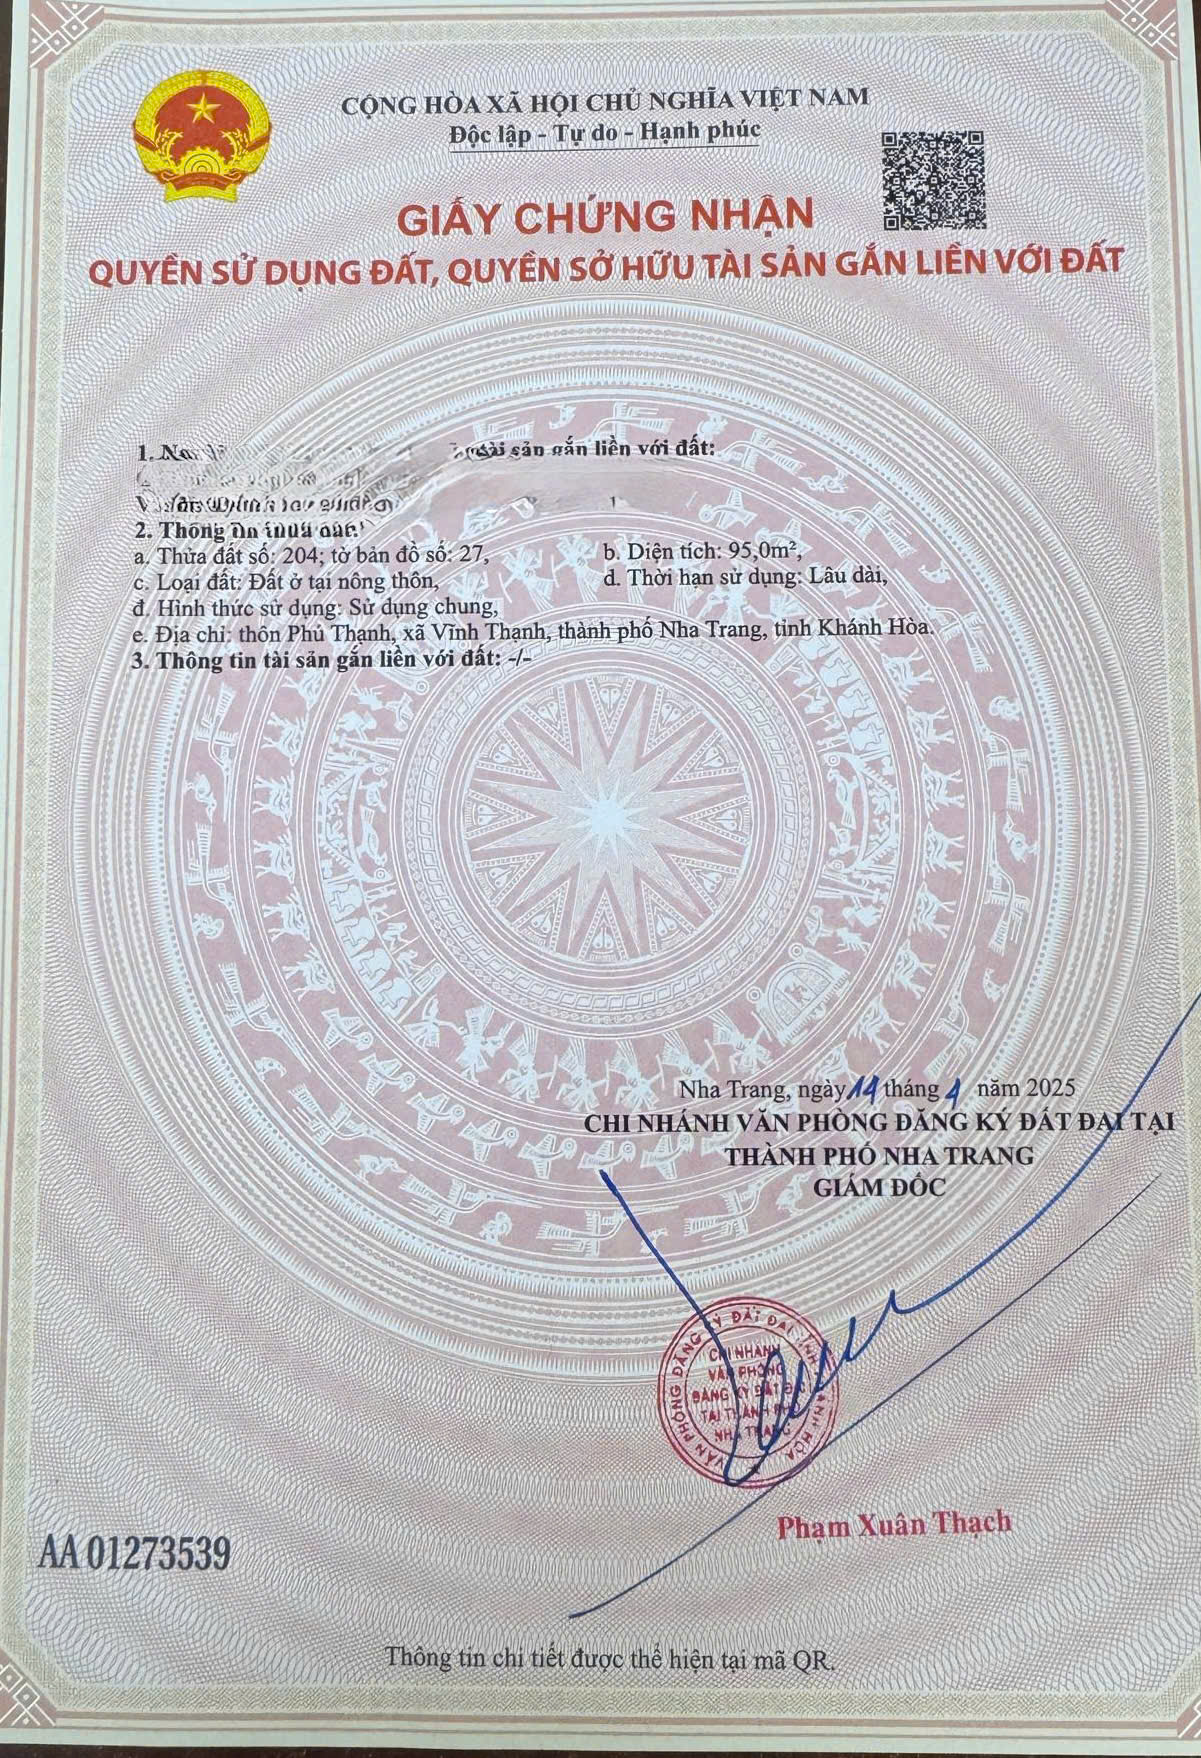 CỘNG HÒA XÃ HỘI CHỦ NGHĨA VIỆT NAM
Độc lập - Tự do - Hạnh phúc
GIẤY CHỨNG NHẬN
QUYỀN SỬ DỤNG ĐẤT, QUYỀN SỞ HỮU TÀI SẢN GẮN LIỀN VỚI ĐẤT
1. tài sản gắn liền với đất:
2. Thông
a. Thửa đất số: 204; tờ bản đồ số: 27, b. Diện tích: 95,0m²,
c. Loại đất: Đất ở tại nông thôn, d. Thời hạn sử dụng: Lâu dài,
đ. Hình thức sử dụng: Sử dụng chung,
e. Địa chỉ: thôn Phú Thạnh, xã Vĩnh Thạnh, thành phố Nha Trang, tỉnh Khánh Hòa.
3. Thông tin tài sản gắn liền với đất: -/-
Nha Trang, ngày 14 tháng năm 2025
CHI NHÁNH VĂN PHÒNG ĐĂNG KÝ ĐẤT ĐAI TẠI
THÀNH PHỐ NHA TRANG
GIÁM ĐỐC
VĂN PHÒNG ĐĂNG KÝ ĐẤT ĐAI TỈNH KHÁNH HÒA
CHI NHÁNH
VĂN PHÒNG
ĐĂNG KÝ ĐẤT ĐAI
TẠI THÀNH PHỐ
NHA TRANG
Phạm Xuân Thạch
AA 01273539
Thông tin chi tiết được thể hiện tại mã QR.